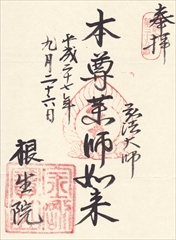 奉拝
弘法大師
本尊薬師如来
平成二十七年
九月二十六日
根生院